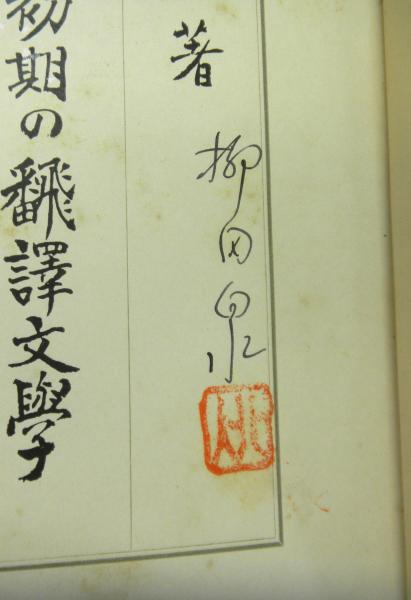 著
柳田泉
初期の飜譯文學